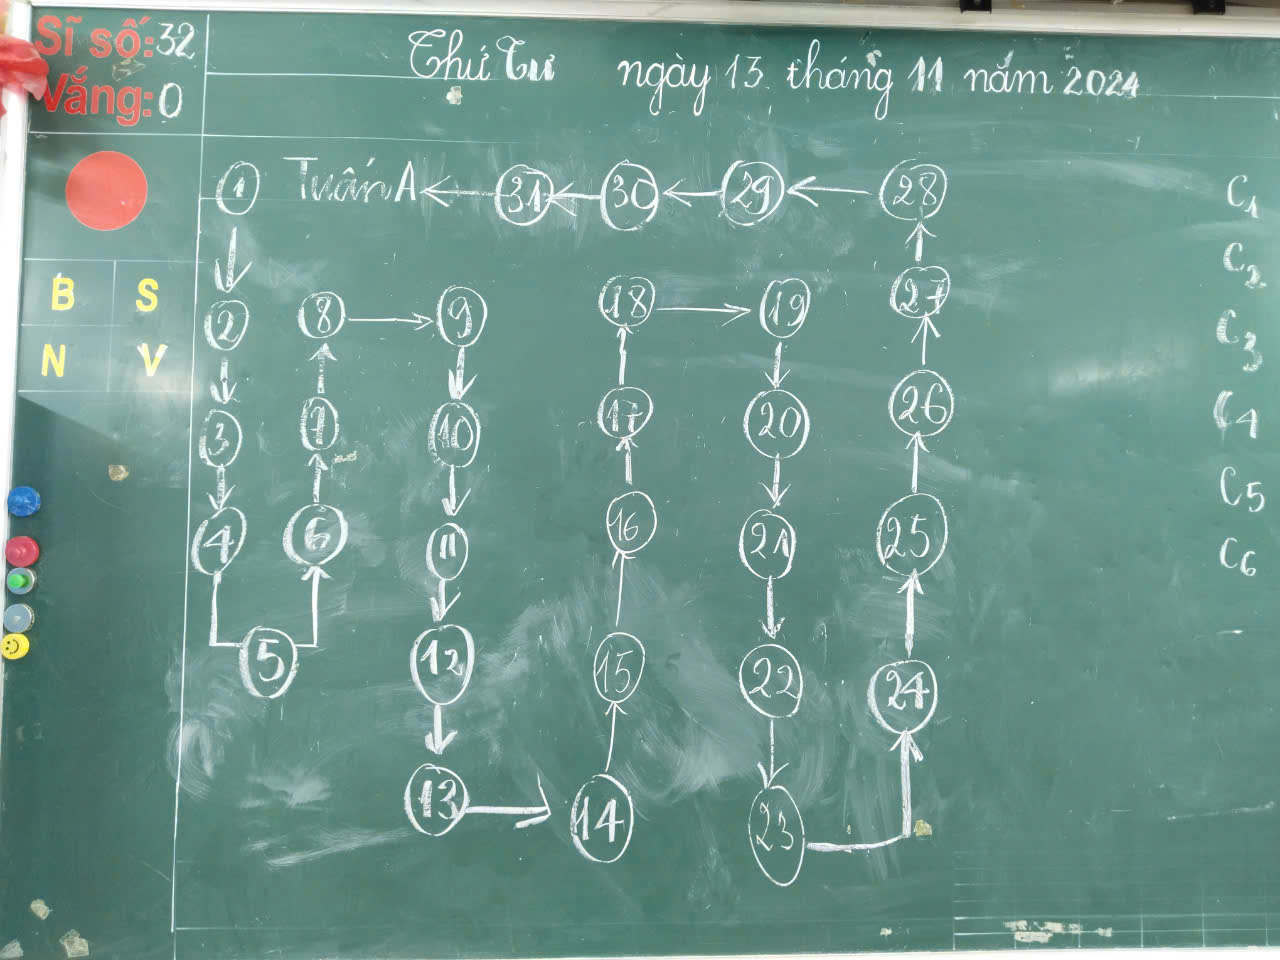 Sĩ số: 32
Vắng: 0
Thứ Tư ngày 13 tháng 11 năm 2024
1 Tuấn A 31 30 29 28
2 8 9 18 19 27
3 7 10 17 20 26
4 6 11 16 21 25
5 12 15 22 24
13 14 23
B S
N V
C1
C2
C3
C4
C5
C6